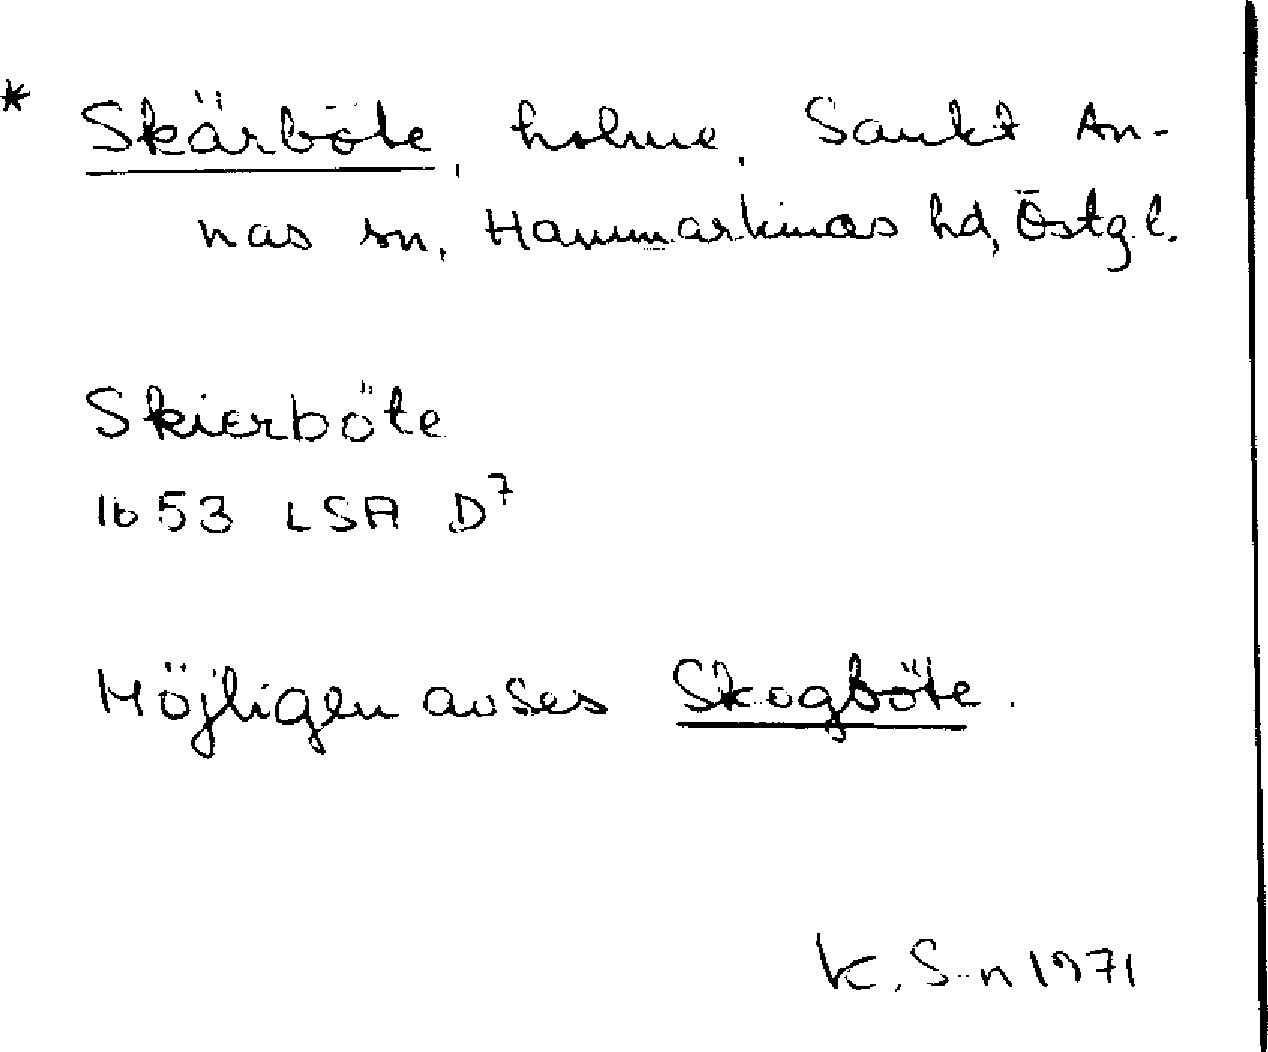 * Skärböte, holme, Sankt An-
nas sn, Hammarkinds hd, Östgl.
Skierböte
1653 LSA D7
Möjligen avses Skogböte.
K. S-n 1971